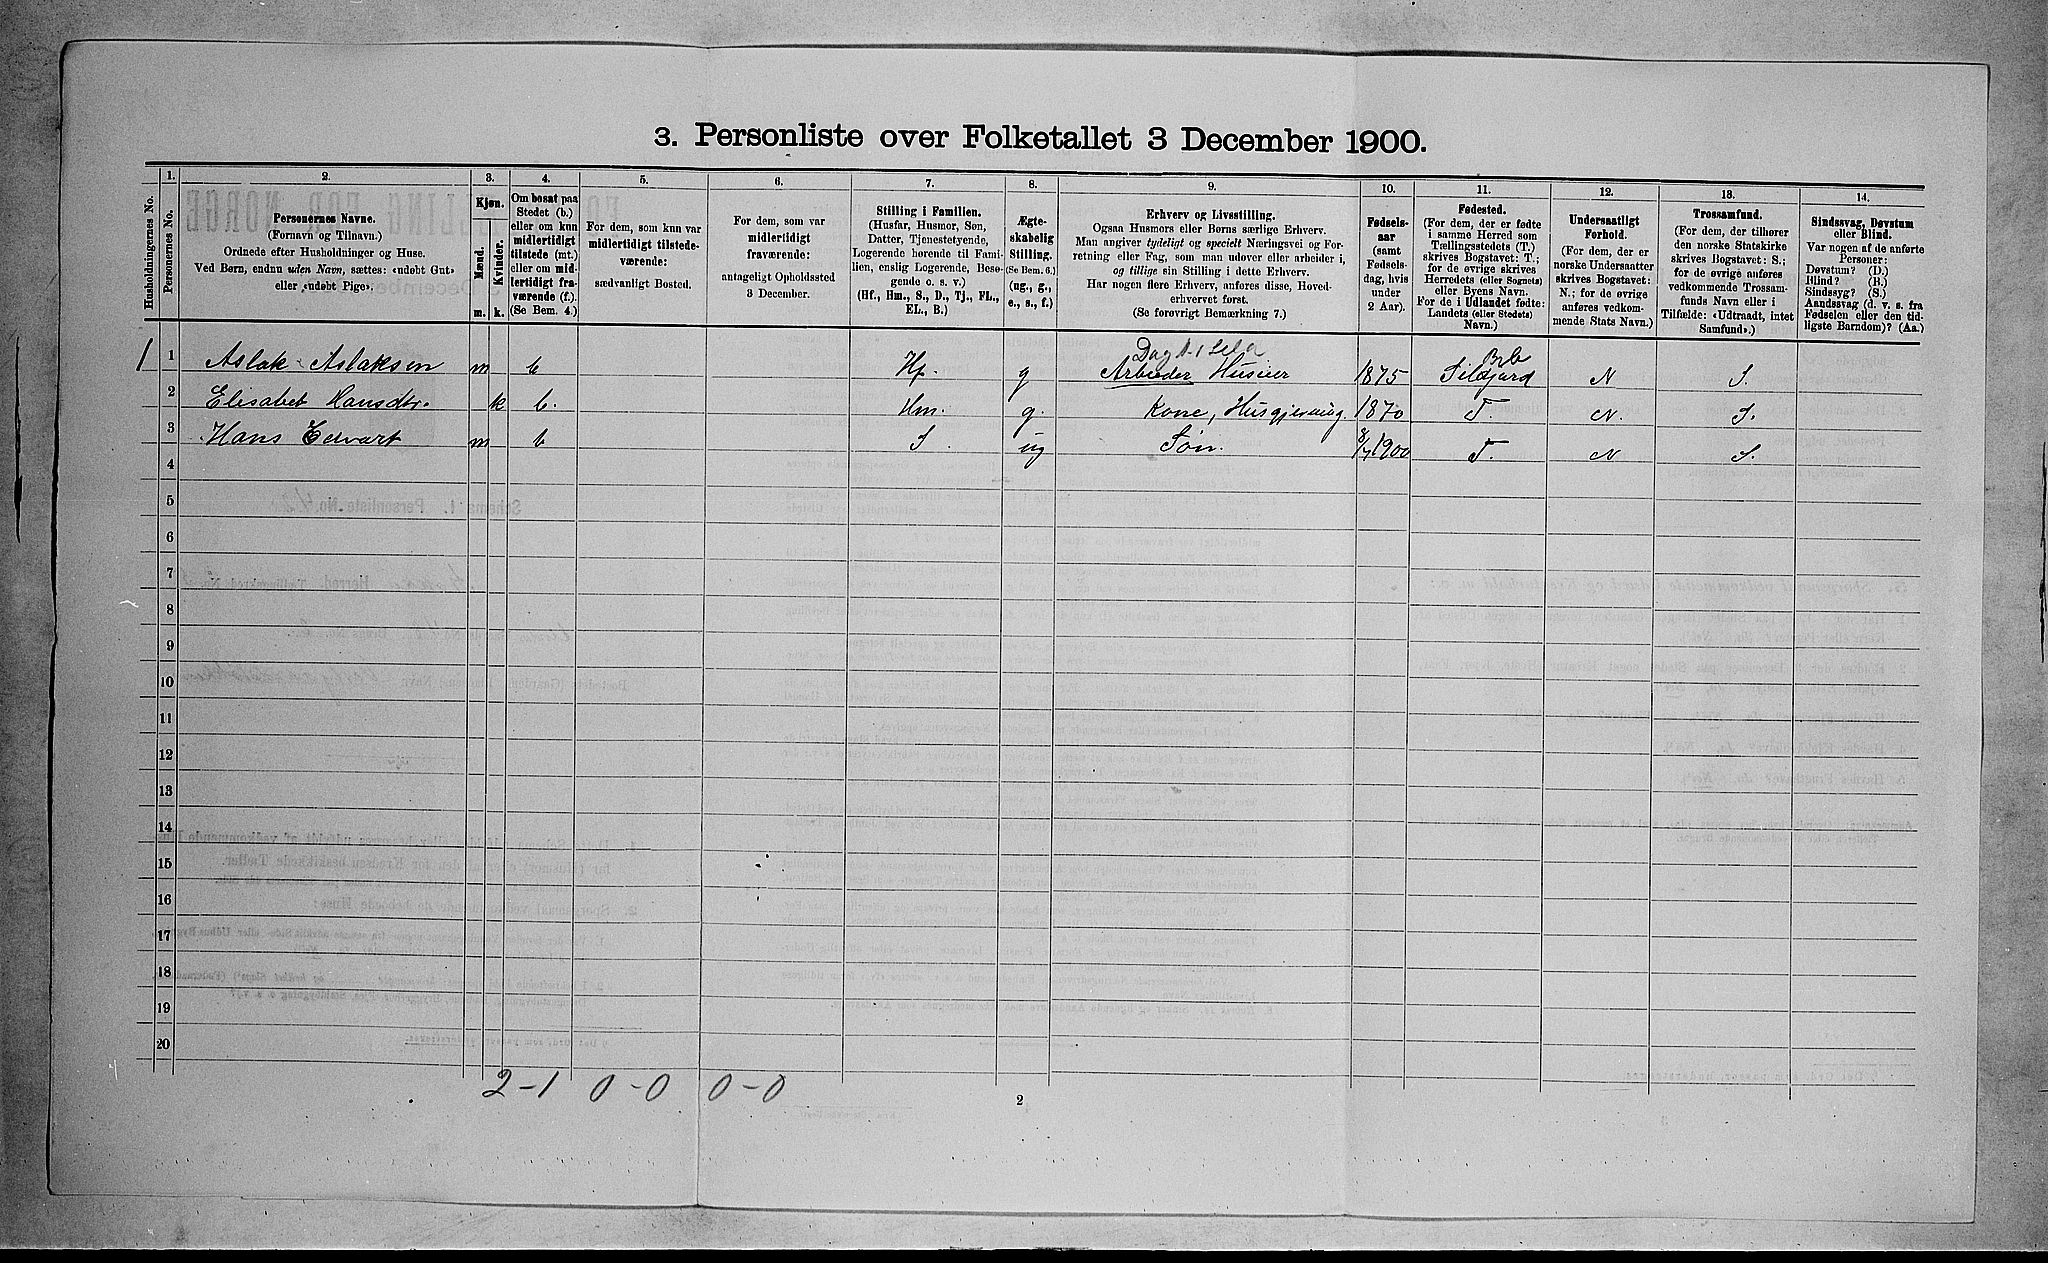 3. Personliste over Folketallet 3 December 1900.
1. 2. 3. 4. 5. 6. 7. 8. 9. 10. 11. 12. 13. 14.
Husholdningernes No.
Personernes No.
Personernes Navne.
(Fornavn og Tilnavn.)
Ordnede efter Husholdninger og Huse.
Ved Børn, endnu uden Navn, sættes: «udøbt Gut»
eller «udøbt Pige».
Kjøn.
Mænd.
Kvinder.
m. k.
Om bosat paa
Stedet (b.)
eller om kun
midlertidigt
tilstede (mt.)
eller om mid-
lertidigt fra-
værende (f.).
(Se Bem. 4.)
For dem, som kun var
midlertidigt tilstede-
værende:
sædvanligt Bosted.
For dem, som var
midlertidigt
fraværende:
antageligt Opholdssted
3 December.
Stilling i Familien.
(Husfar, Husmor, Søn,
Datter, Tjenestetyende,
Logerende hørende til Fami-
lien, enslig Logerende, Besø-
gende o. s. v.)
(Hf., Hm., S., D., Tj., FL.,
EL., B.)
Ægte-
skabelig
Stilling.
(Se Bem. 6.)
(ug., g.,
e., s., f.)
Erhverv og Livsstilling.
Ogsaa Husmors eller Børns særlige Erhverv.
Man angiver tydeligt og specielt Næringsvei og For-
retning eller Fag, som man udøver eller arbeider i,
og tillige sin Stilling i dette Erhverv.
Har nogen flere Erhverv, anføres disse, Hoved-
erhvervet først.
(Se forøvrigt Bemærkning 7.)
Fødsels-
aar
(samt
Fødsels-
dag, hvis
under
2 Aar).
Fødested.
(For dem, der er fødte
i samme Herred som
Tællingsstedets (T.)
skrives Bogstavet: T.;
for de øvrige skrives
Herredets (eller Sognets)
eller Byens Navn.
For de i Udlandet fødte:
Landets (eller Stedets)
Navn.)
Undersaatligt
Forhold.
(For dem, der er
norske Undersaatter
skrives Bogstavet:
N.; for de øvrige
anføres vedkom-
mende Stats Navn.)
Trossamfund.
(For dem, der tilhører
den norske Statskirke
skrives Bogstavet: S.;
for de øvrige anføres
vedkommende Trossam-
funds Navn eller i
Tilfælde: «Udtraadt, intet
Samfund».)
Sindssvag, Døvstum
eller Blind.
Var nogen af de anførte
Personer:
Døvstum? (D.)
Blind? (B.)
Sindssyg? (S.)
Aandssvag (d. v. s. fra
Fødselen eller den tid-
ligste Barndom)? (Aa.)
1 1 Aslak Aslaksen m b Hf. g Arbeider Husieer 1875 Sildjord N S.
2 Elisabet Hansdtr. k b. Hm. g. Kone, Husgjerning. 1870 T. N. S.
3 Hans Edvart m b S. ug Søn. 8/7 1900 T. N S.
4
5
6
7
8
9
10
11
12
13
14
15
16
17
18
19
20
2-1 0-0 0-0
2